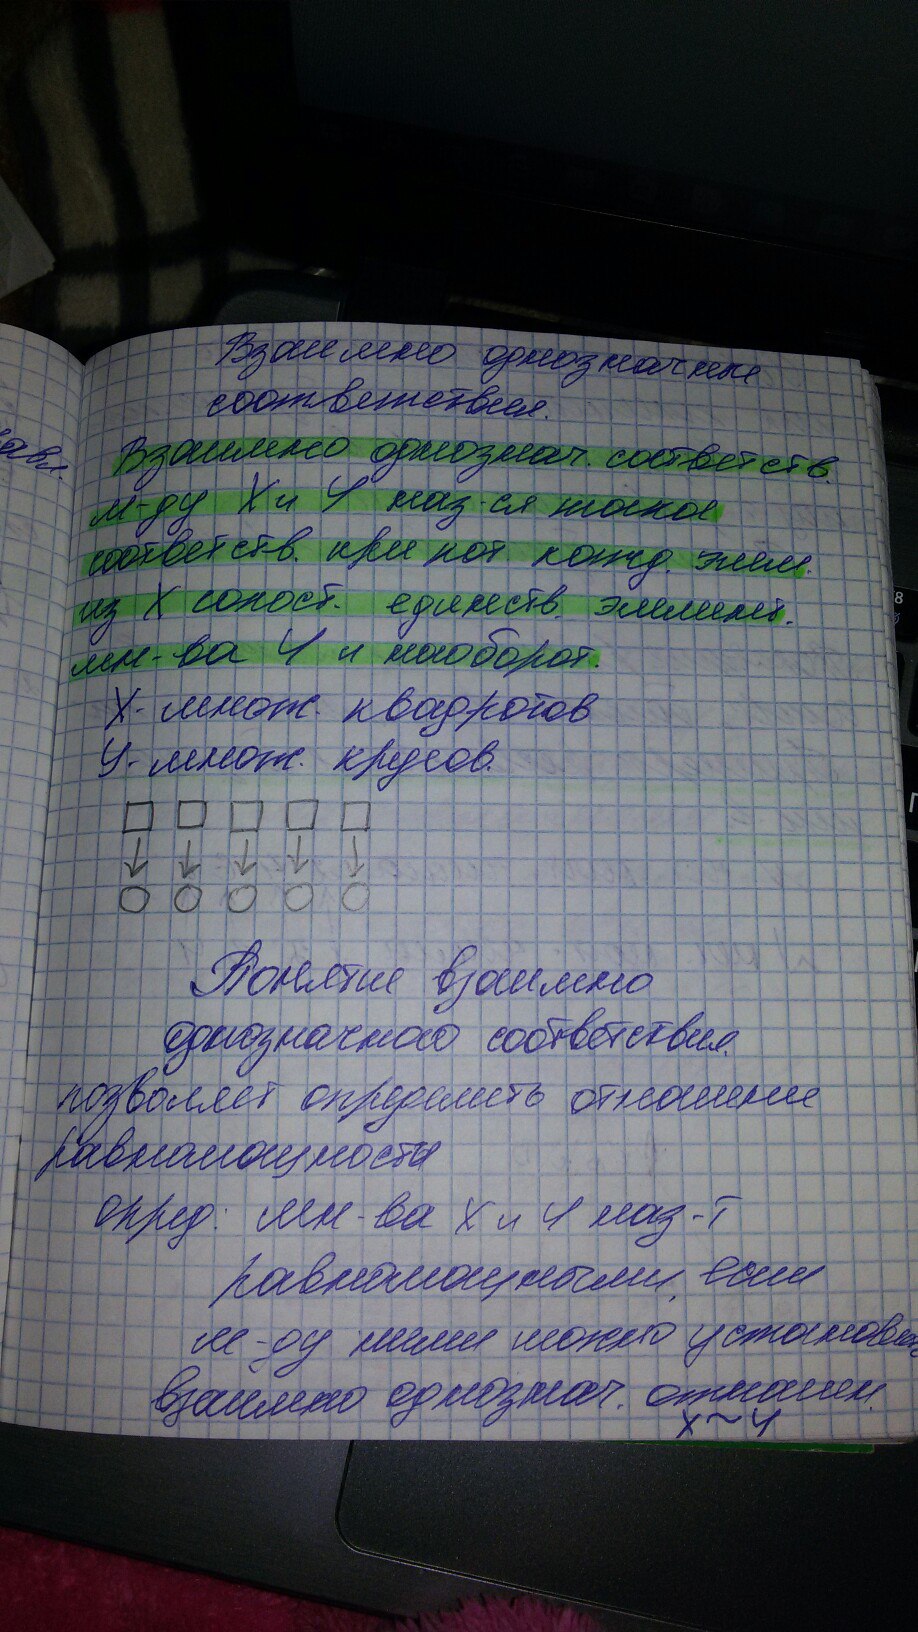 Взаимно однозначные
соответствия.
Взаимно однознач. соответств.
м-ду X и Y наз-ся такое
соответств. при кот. кажд. элем.
из X сопост. единств. элемент.
мн-ва Y и наоборот.
X- множ. квадратов
Y- множ. кругов.
Понятие взаимно
однозначного соответствия.
позволяет определить отношение
равномощности
опред: мн-ва X и Y наз-т
равномощными, если
м-ду ними можно установить
взаимно однознач. отношен.
X~Y
авл.